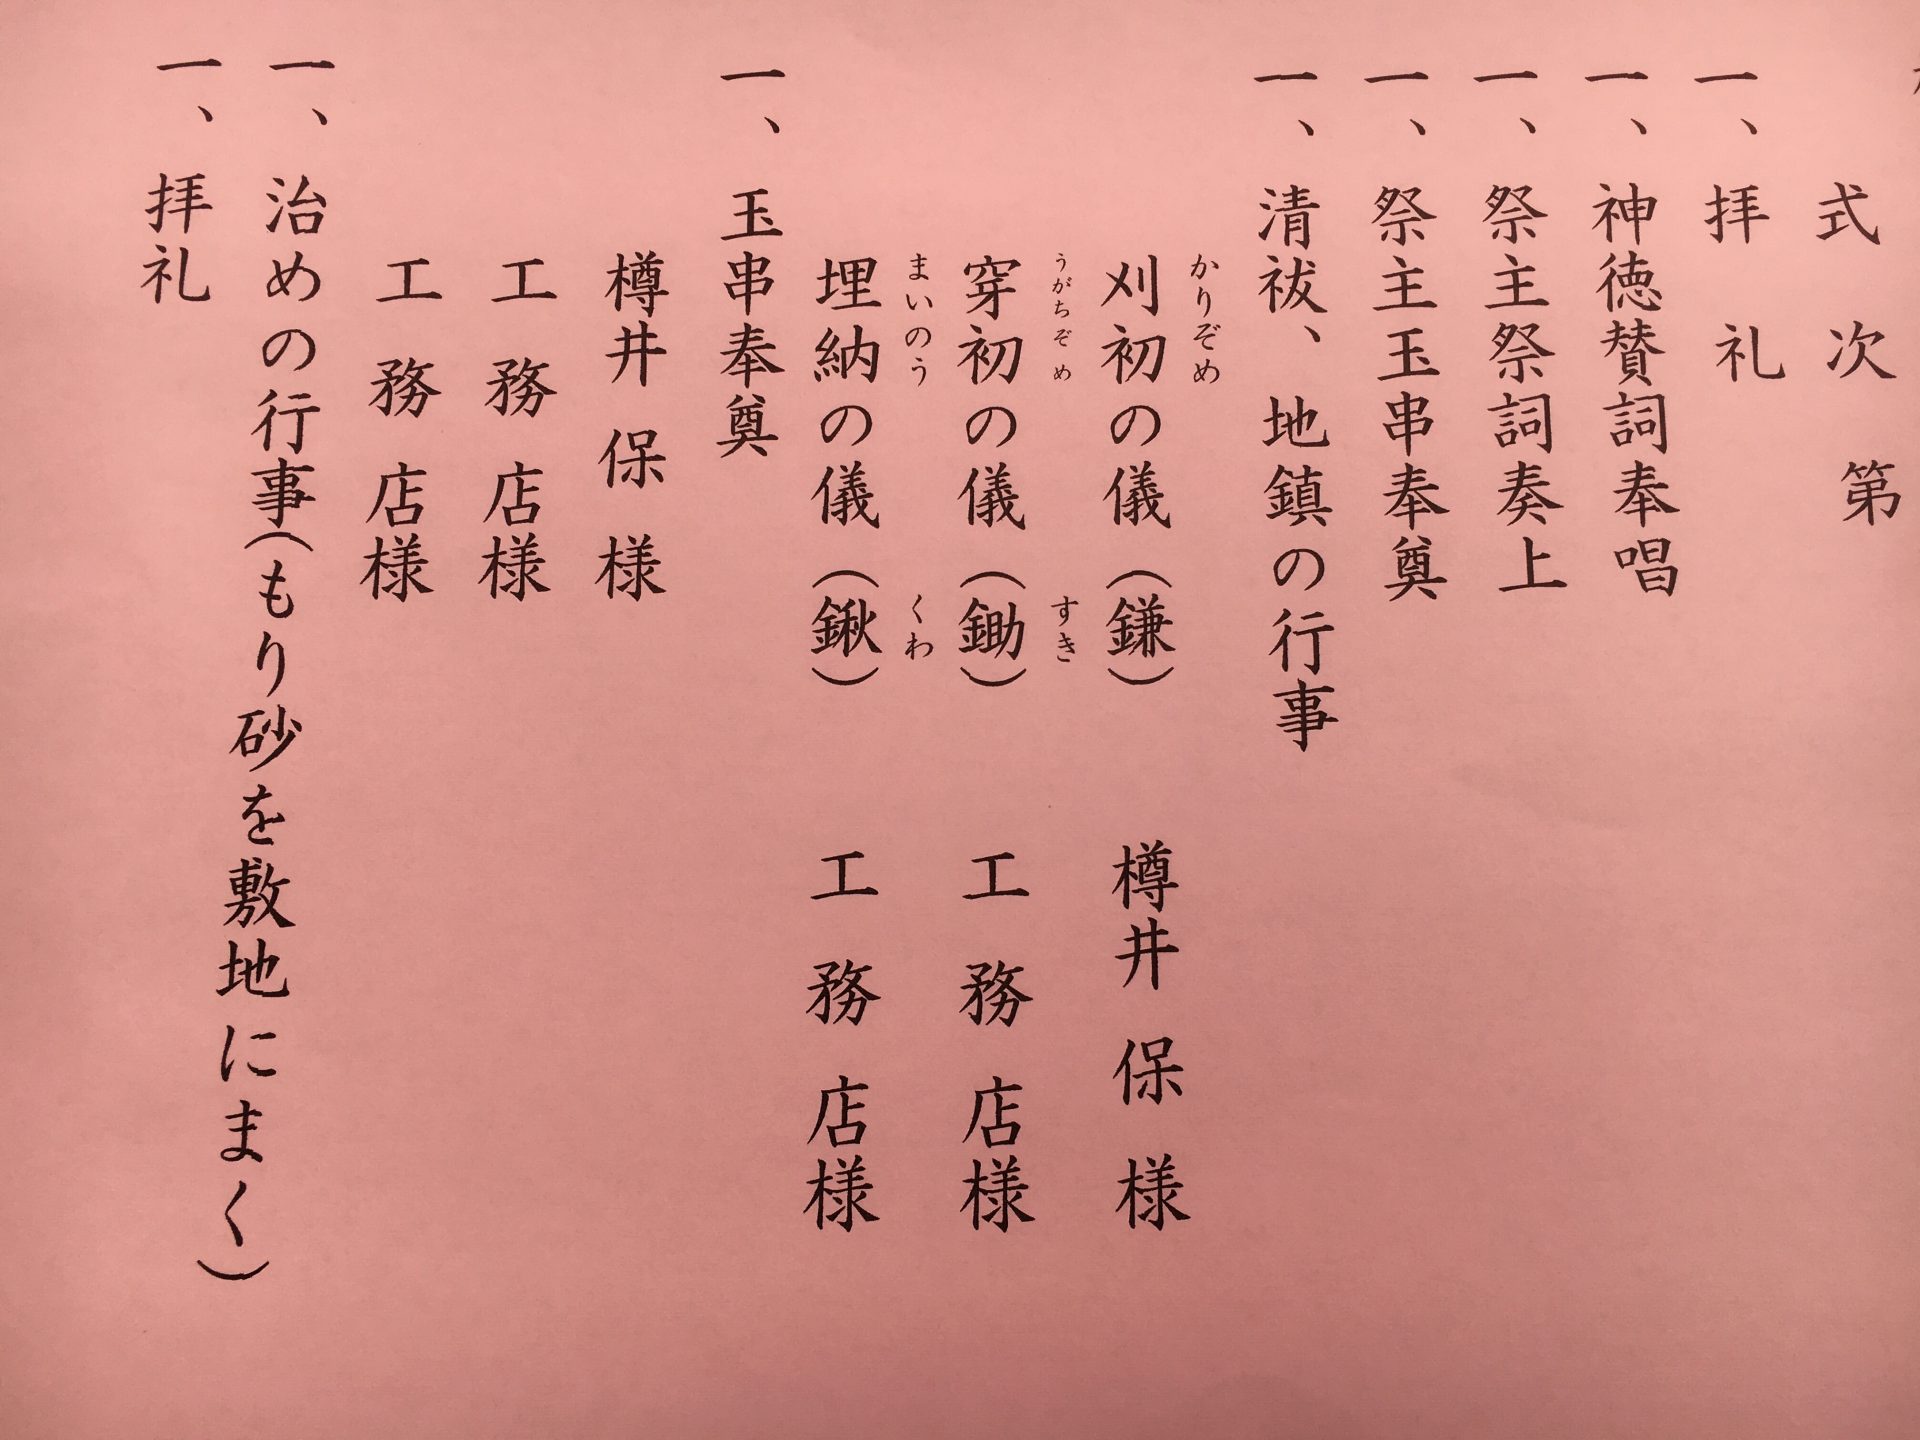 式次第
一、拝礼
一、神徳賛詞奉唱
一、祭主祭詞奏上
一、祭主玉串奉奠
一、清祓、地鎮の行事
かりぞめ
刈初の儀（鎌） 樽井保様
うがちぞめ すき
穿初の儀（鋤） 工務店様
まいのう くわ
埋納の儀（鍬） 工務店様
一、玉串奉奠
樽井保様
工務店様
工務店様
一、治めの行事（もり砂を敷地にまく）
一、拝礼